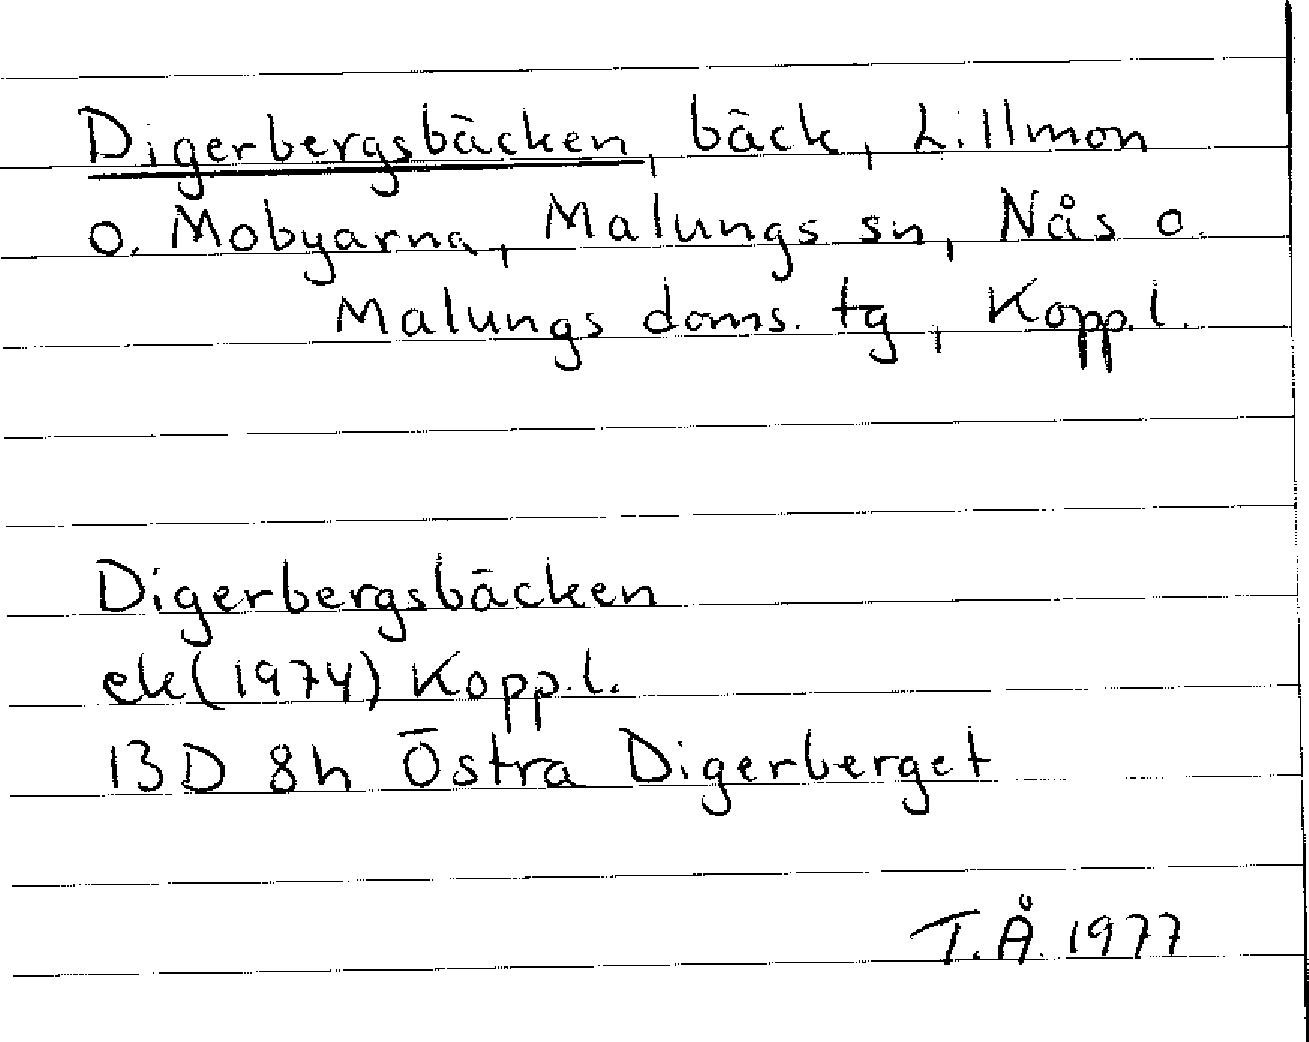 Digerbergsbäcken, bäck, Lillmon
o. Mobyarna, Malungs sn, Nås o.
Malungs doms. tg, Kopp.l.
Digerbergsbäcken
ek (1974) Kopp.l.
13D 8h Östra Digerberget
T.Å. 1977